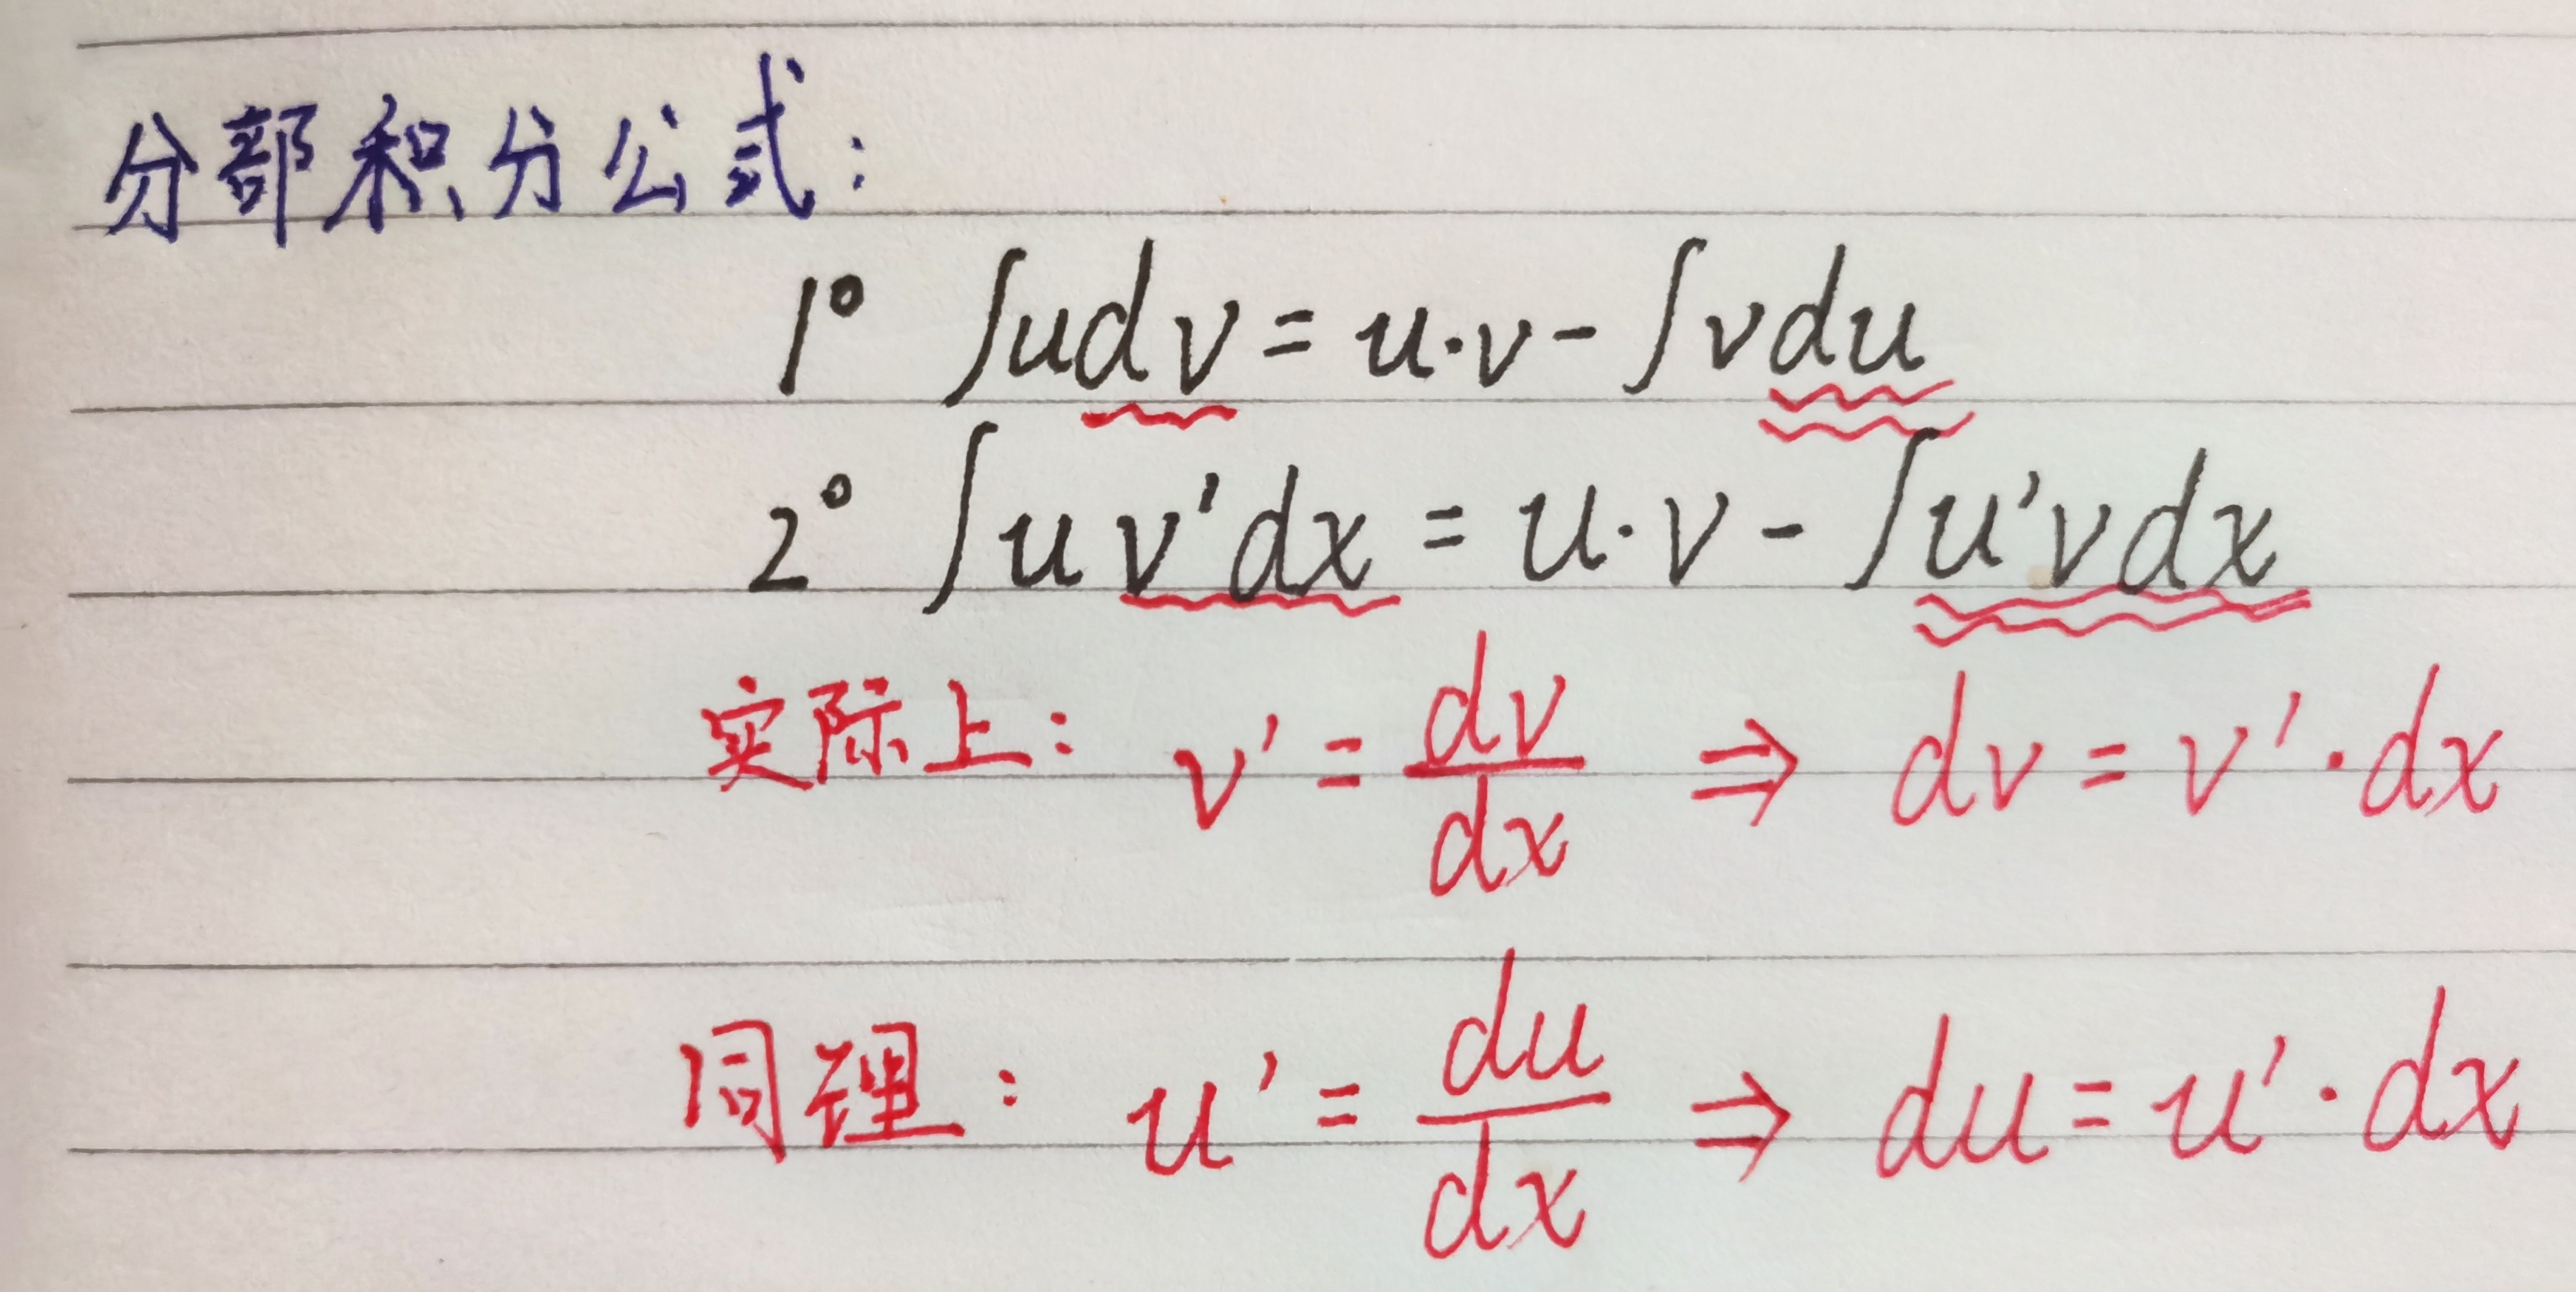 分部积分公式:
1° ∫udv = u·v - ∫vdu
2° ∫uv'dx = u·v - ∫u'vdx
实际上: v' = dv/dx ⇒ dv = v'·dx
同理: u' = du/dx ⇒ du = u'·dx